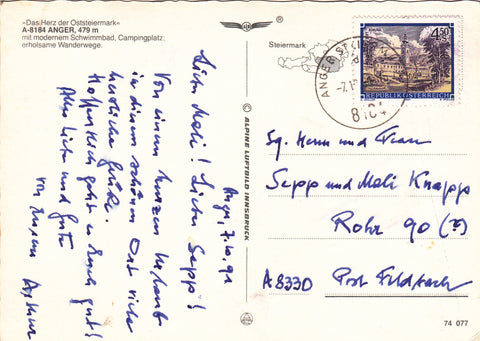 »Das Herz der Oststeiermark«
A-8184 ANGER, 479 m
mit modernem Schwimmbad, Campingplatz;
erholsame Wanderwege.
®
Steiermark
ANGER
8184
4.50
REPUBLIK ÖSTERREICH
© ALPINE LUFTBILD INNSBRUCK
Anger, 7.10.91
Liebe Mali! Lieber Sepp!
Von einem kurzen Urlaub
in diesem schönen Ort viele
herzliche Grüße.
Hoffentlich geht es Euch gut!
Alles Liebe und Gute
von Eurem Arthur
Sg. Herrn und Frau
Sepp und Mali Knapp
Rohr 90 (?)
A8330 Post Feldbach
74 077